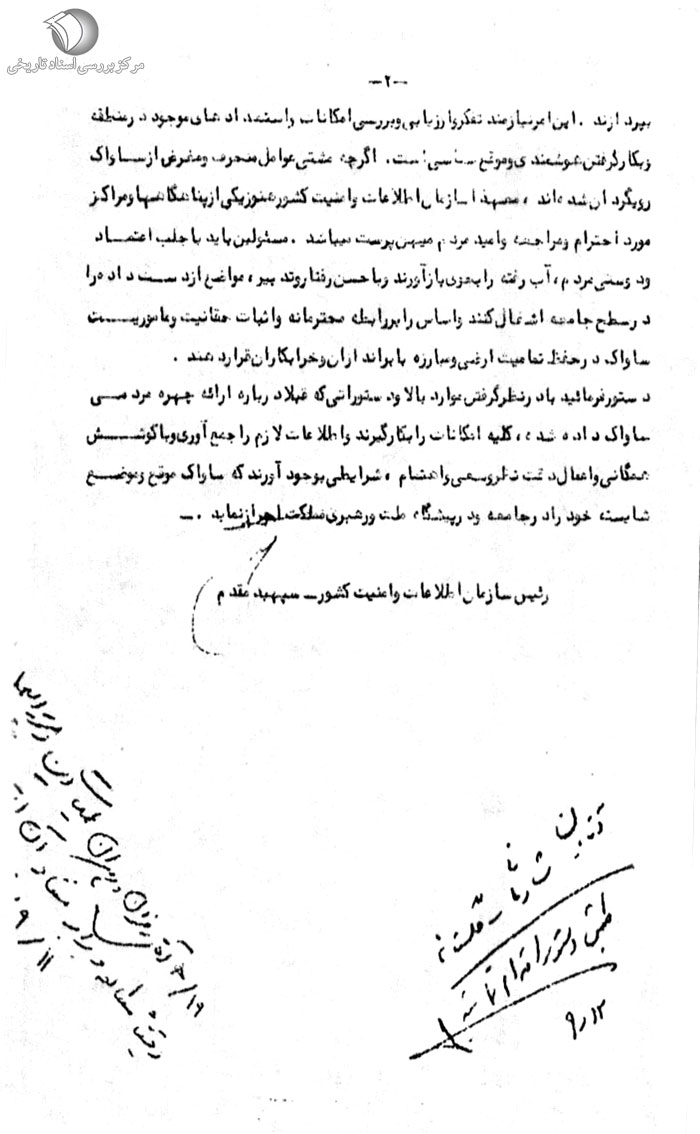 مرکز بررسی اسناد تاریخی
-۲-
بپردازند . این امر نیازمند تفکر و ارزیابی و بررسی امکانات و استعدادهای موجود در منطقه
و بکار گرفتن هوشمندی و موقع شناسی است . اگرچه مشتی عوامل منحرف و مغرض از ساواک
رویگردان شده‌اند ، معهذا سازمان اطلاعات و امنیت کشور هنوز یکی از پناهگاهها و مراکز
مورد احترام و مراجعه و امید مردم میهن پرست میباشد . مسئولین باید با جلب اعتماد
و دوستی مردم ، آب رفته را بجوی باز آورند و با حسن رفتار و تدبیر ، مواضع از دست داده را
در سطح جامعه اشغال کنند و اساس را بر رابطه محترمانه و اثبات حقانیت و ماموریت
ساواک در حفظ تمامیت ارضی و مبارزه با براندازان و خرابکاران قرار دهند .
دستور فرمائید با در نظر گرفتن موارد بالا و دستوراتی که قبلا درباره ارائه چهره مردمی
ساواک داده شده ، کلیه امکانات را بکار گیرند و اطلاعات لازم را جمع آوری و با کوشش
همگانی و اعمال دقت نظر و سعی و اهتمام ، شرایطی بوجود آورند که ساواک موقع و موضع
شایسته خود را در جامعه و در پیشگاه ملت و رهبری مملکت احراز نماید . ــ
رئیس سازمان اطلاعات و امنیت کشور ــ سپهبد مقدم
طبق دستور اقدام
۹/۱۲
۹/۱۱